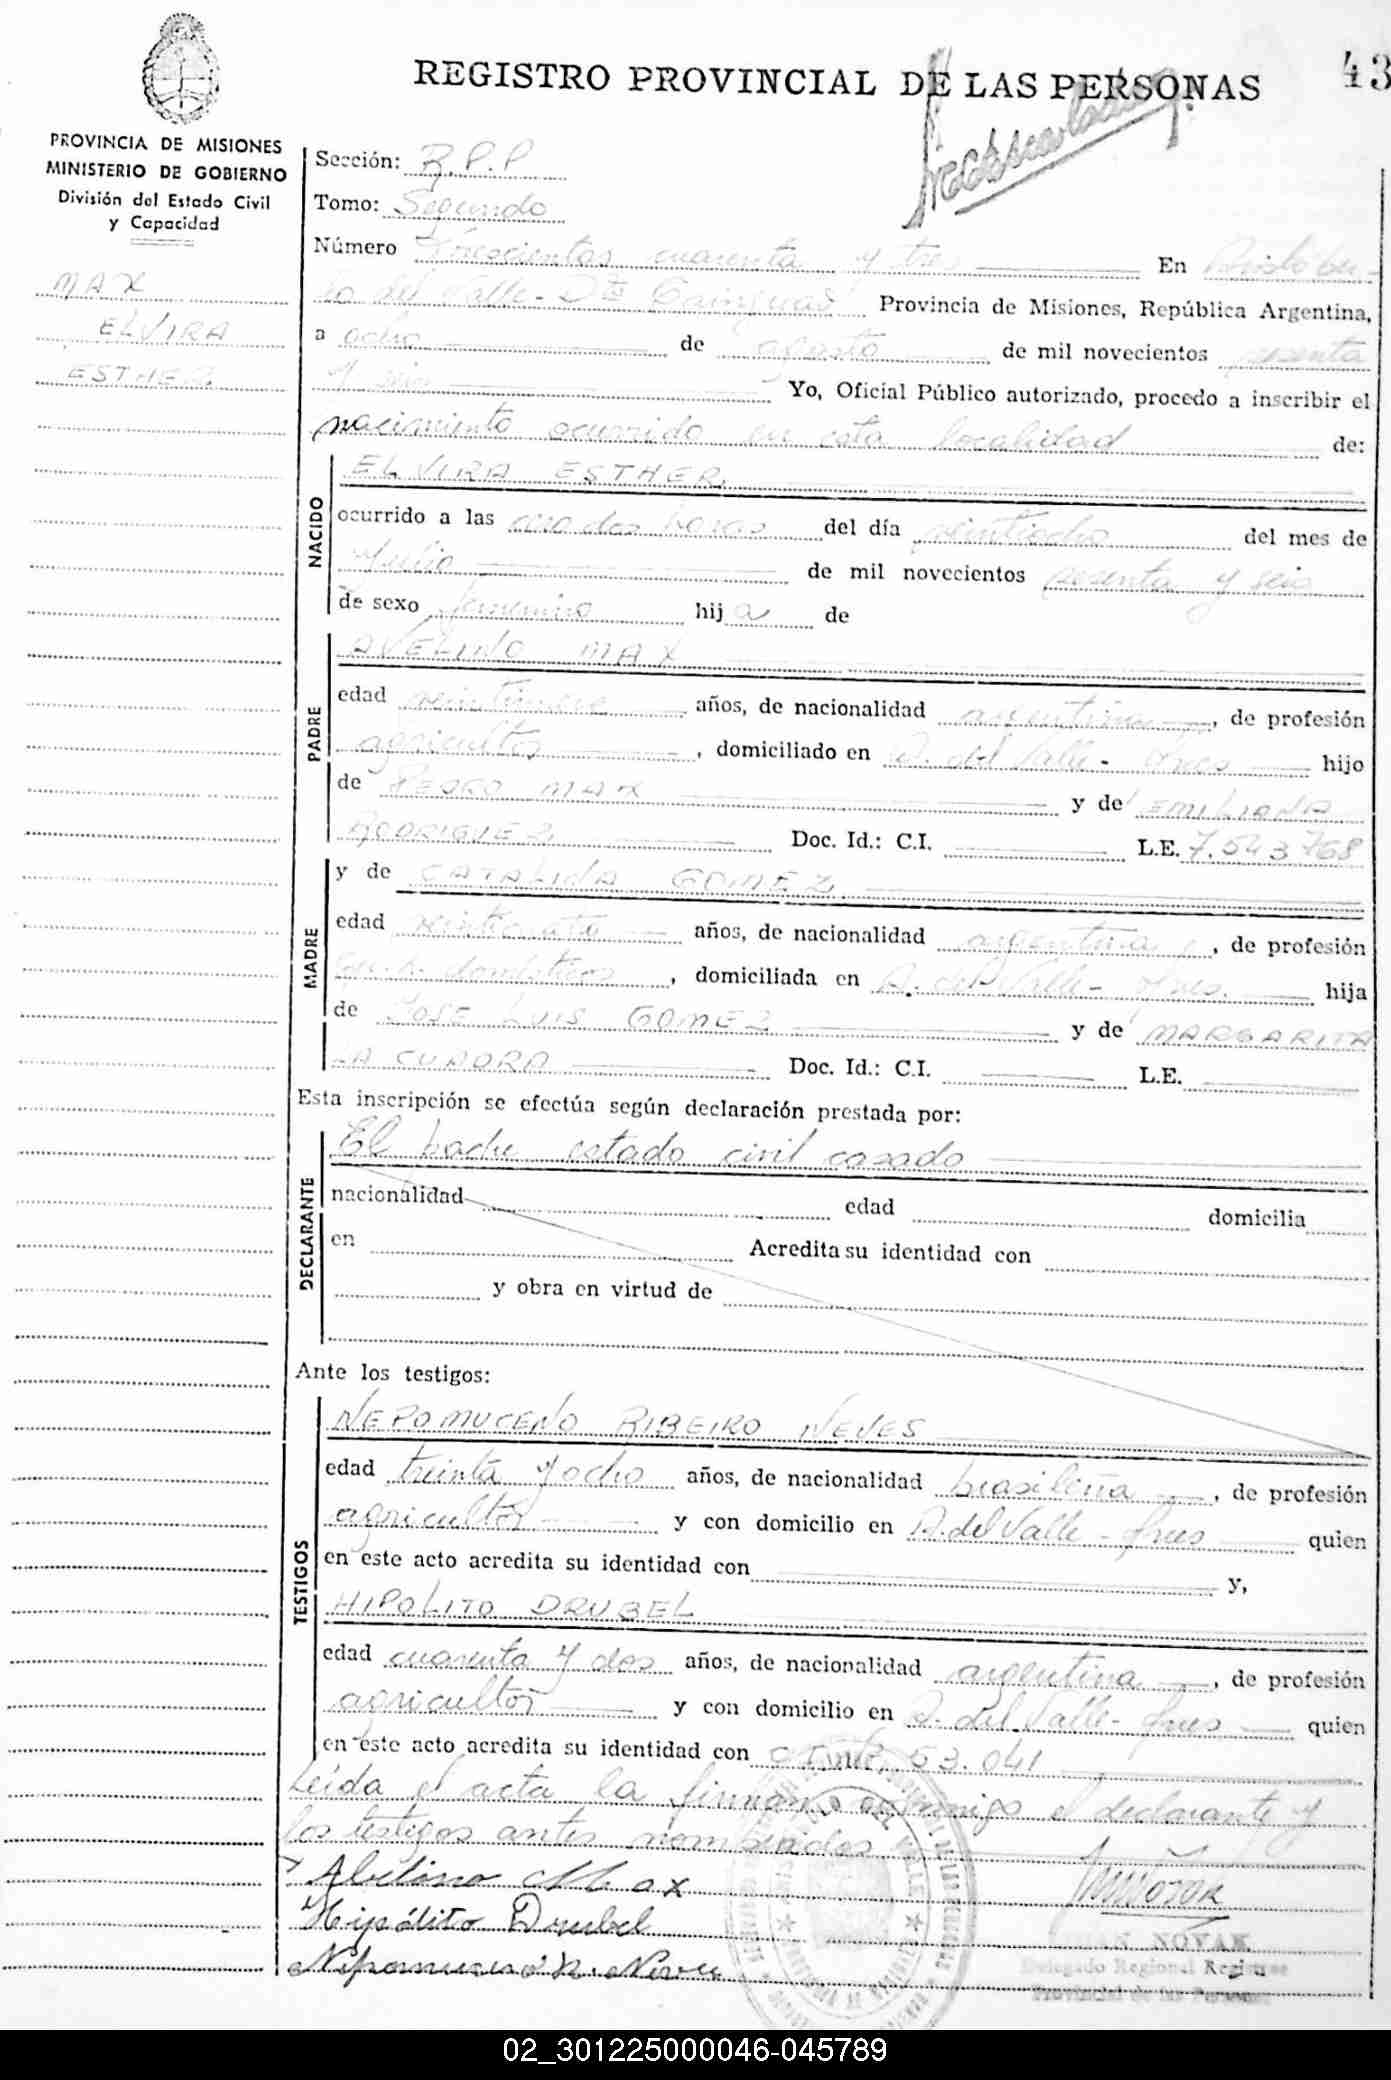 REGISTRO PROVINCIAL DE LAS PERSONAS
43
PROVINCIA DE MISIONES
MINISTERIO DE GOBIERNO
División del Estado Civil
y Capacidad
MAX
ELVIRA
ESTHER
Sección: R.P.P
Tomo: Segundo
Número Trescientos cuarenta y tres En Aristóbu-
lo del Valle - Dto Cainguás Provincia de Misiones, República Argentina,
a ocho de agosto de mil novecientos sesenta
y seis Yo, Oficial Público autorizado, procedo a inscribir el
nacimiento ocurrido en esta localidad de:
NACIDO
ELVIRA ESTHER
ocurrido a las horas del día del mes de
Julio de mil novecientos sesenta y seis
de sexo femenino hija de
PADRE
AVELINO MAX
edad años, de nacionalidad argentina, de profesión
agricultor, domiciliado en A. del Valle - hijo
de PEDRO MAX y de EMILIANA
RODRIGUEZ Doc. Id.: C.I. L.E. 7.543768
MADRE
y de CATALINA GOMEZ
edad años, de nacionalidad argentina, de profesión
domésticos, domiciliada en A. del Valle - hija
de JOSE LUIS GOMEZ y de MARGARITA
LA CUADRA Doc. Id.: C.I. L.E.
Esta inscripción se efectúa según declaración prestada por:
DECLARANTE
El padre estado civil casado
nacionalidad edad domicilia
en Acredita su identidad con
y obra en virtud de
Ante los testigos:
TESTIGOS
NEPOMUCENO RIBEIRO NEVES
edad treinta y ocho años, de nacionalidad brasileña, de profesión
agricultor y con domicilio en A. del Valle - quien
en este acto acredita su identidad con y,
HIPOLITO DRUBEL
edad cuarenta y dos años, de nacionalidad argentina, de profesión
agricultor y con domicilio en A. del Valle - quien
en este acto acredita su identidad con 53.041
Leída el acta la firman conmigo el declarante y
los testigos antes nombrados
Abelino Max
Hipólito Drubel
JUAN NOVAK
Delegado Regional Registro
Provincial de las Personas
02_301225000046-045789